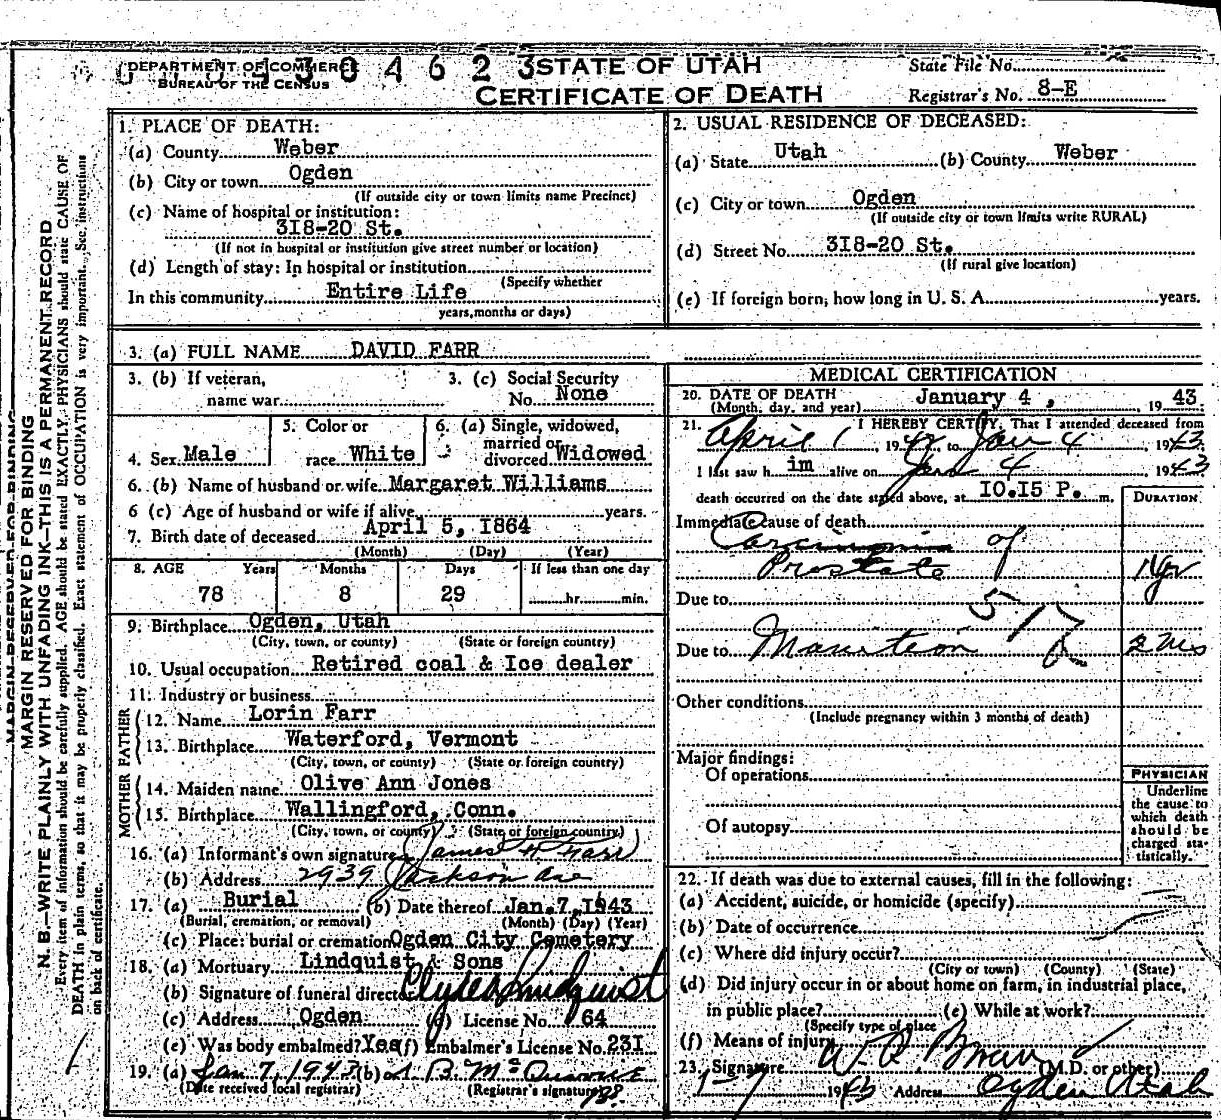 DEPARTMENT OF COMMERCE
BUREAU OF THE CENSUS
304623
STATE OF UTAH
CERTIFICATE OF DEATH
State File No.
Registrar's No. 8-E
MARGIN RESERVED FOR BINDING
N. B.—WRITE PLAINLY WITH UNFADING INK—THIS IS A PERMANENT RECORD
Every item of information should be carefully supplied. AGE should be stated EXACTLY. PHYSICIANS should state CAUSE OF
DEATH in plain terms, so that it may be properly classified. Exact statement of OCCUPATION is very important. See instructions
on back of certificate.
1. PLACE OF DEATH:
(a) County Weber
(b) City or town Ogden
(If outside city or town limits name Precinct)
(c) Name of hospital or institution:
318-20 St.
(If not in hospital or institution give street number or location)
(d) Length of stay: In hospital or institution
(Specify whether
In this community Entire Life
years, months or days)
2. USUAL RESIDENCE OF DECEASED:
(a) State Utah (b) County Weber
(c) City or town Ogden
(If outside city or town limits write RURAL)
(d) Street No. 318-20 St.
(If rural give location)
(e) If foreign born, how long in U. S. A. years.
3. (a) FULL NAME DAVID FARR
3. (b) If veteran,
name war
3. (c) Social Security
No. None
4. Sex Male
5. Color or
race White
6. (a) Single, widowed,
married or
divorced Widowed
6. (b) Name of husband or wife Margaret Williams
6 (c) Age of husband or wife if alive years.
7. Birth date of deceased April 5, 1864
(Month) (Day) (Year)
8. AGE Years Months Days If less than one day
78 8 29 hr. min.
9. Birthplace Ogden, Utah
(City, town, or county) (State or foreign country)
10. Usual occupation Retired coal & Ice dealer
11. Industry or business
FATHER
12. Name Lorin Farr
13. Birthplace Waterford, Vermont
(City, town, or county) (State or foreign country)
MOTHER
14. Maiden name Olive Ann Jones
15. Birthplace Wallingford, Conn.
(City, town, or county) (State or foreign country)
16. (a) Informant's own signature James H. Farr
(b) Address 2939 Jackson Ave
17. (a) Burial (b) Date thereof Jan. 7, 1943
(Burial, cremation, or removal) (Month) (Day) (Year)
(c) Place: burial or cremation Ogden City Cemetery
18. (a) Mortuary Lindquist & Sons
(b) Signature of funeral director Clyde Lindquist
(c) Address Ogden (d) License No. 64
(e) Was body embalmed? Yes (f) Embalmer's License No. 231
19. (a) Jan 7, 1943 (b)
(Date received local registrar) (Registrar's signature)
MEDICAL CERTIFICATION
20. DATE OF DEATH
(Month, day, and year) January 4, 1943.
21. I HEREBY CERTIFY, That I attended deceased from
April 1, 1942, to Jan 4, 1943
I last saw him alive on Jan 4 1943
death occurred on the date stated above, at 10.15 P. m.
DURATION
Immediate cause of death
Carcinoma of
Prostate 1 yr
Due to
51
Due to 2 Mos
Other conditions
(Include pregnancy within 3 months of death)
Major findings:
Of operations
Of autopsy
PHYSICIAN
Underline
the cause to
which death
should be
charged sta-
tistically.
22. If death was due to external causes, fill in the following:
(a) Accident, suicide, or homicide (specify)
(b) Date of occurrence
(c) Where did injury occur?
(City or town) (County) (State)
(d) Did injury occur in or about home on farm, in industrial place,
in public place? (e) While at work?
(Specify type of place
(f) Means of injury
23. Signature W. R. Brown (M.D. or other)
1-7 1943 Address Ogden Utah